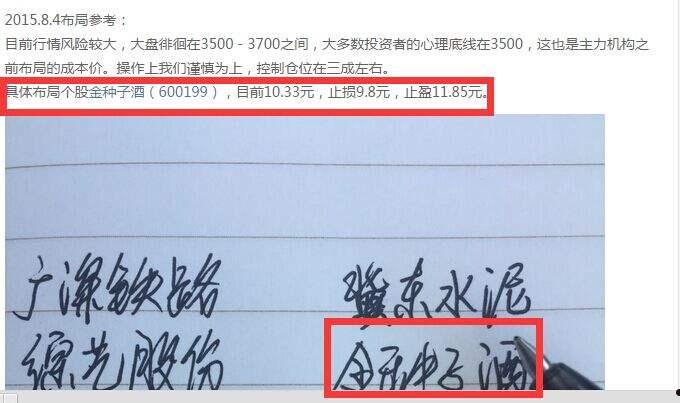 2015.8.4布局参考：
目前行情风险较大，大盘徘徊在3500－3700之间，大多数投资者的心理底线在3500，这也是主力机构之
前布局的成本价。操作上我们谨慎为上，控制仓位在三成左右。
具体布局个股金种子酒（600199），目前10.33元，止损9.8元，止盈11.85元。
广深铁路 冀东水泥
综艺股份 金种子酒